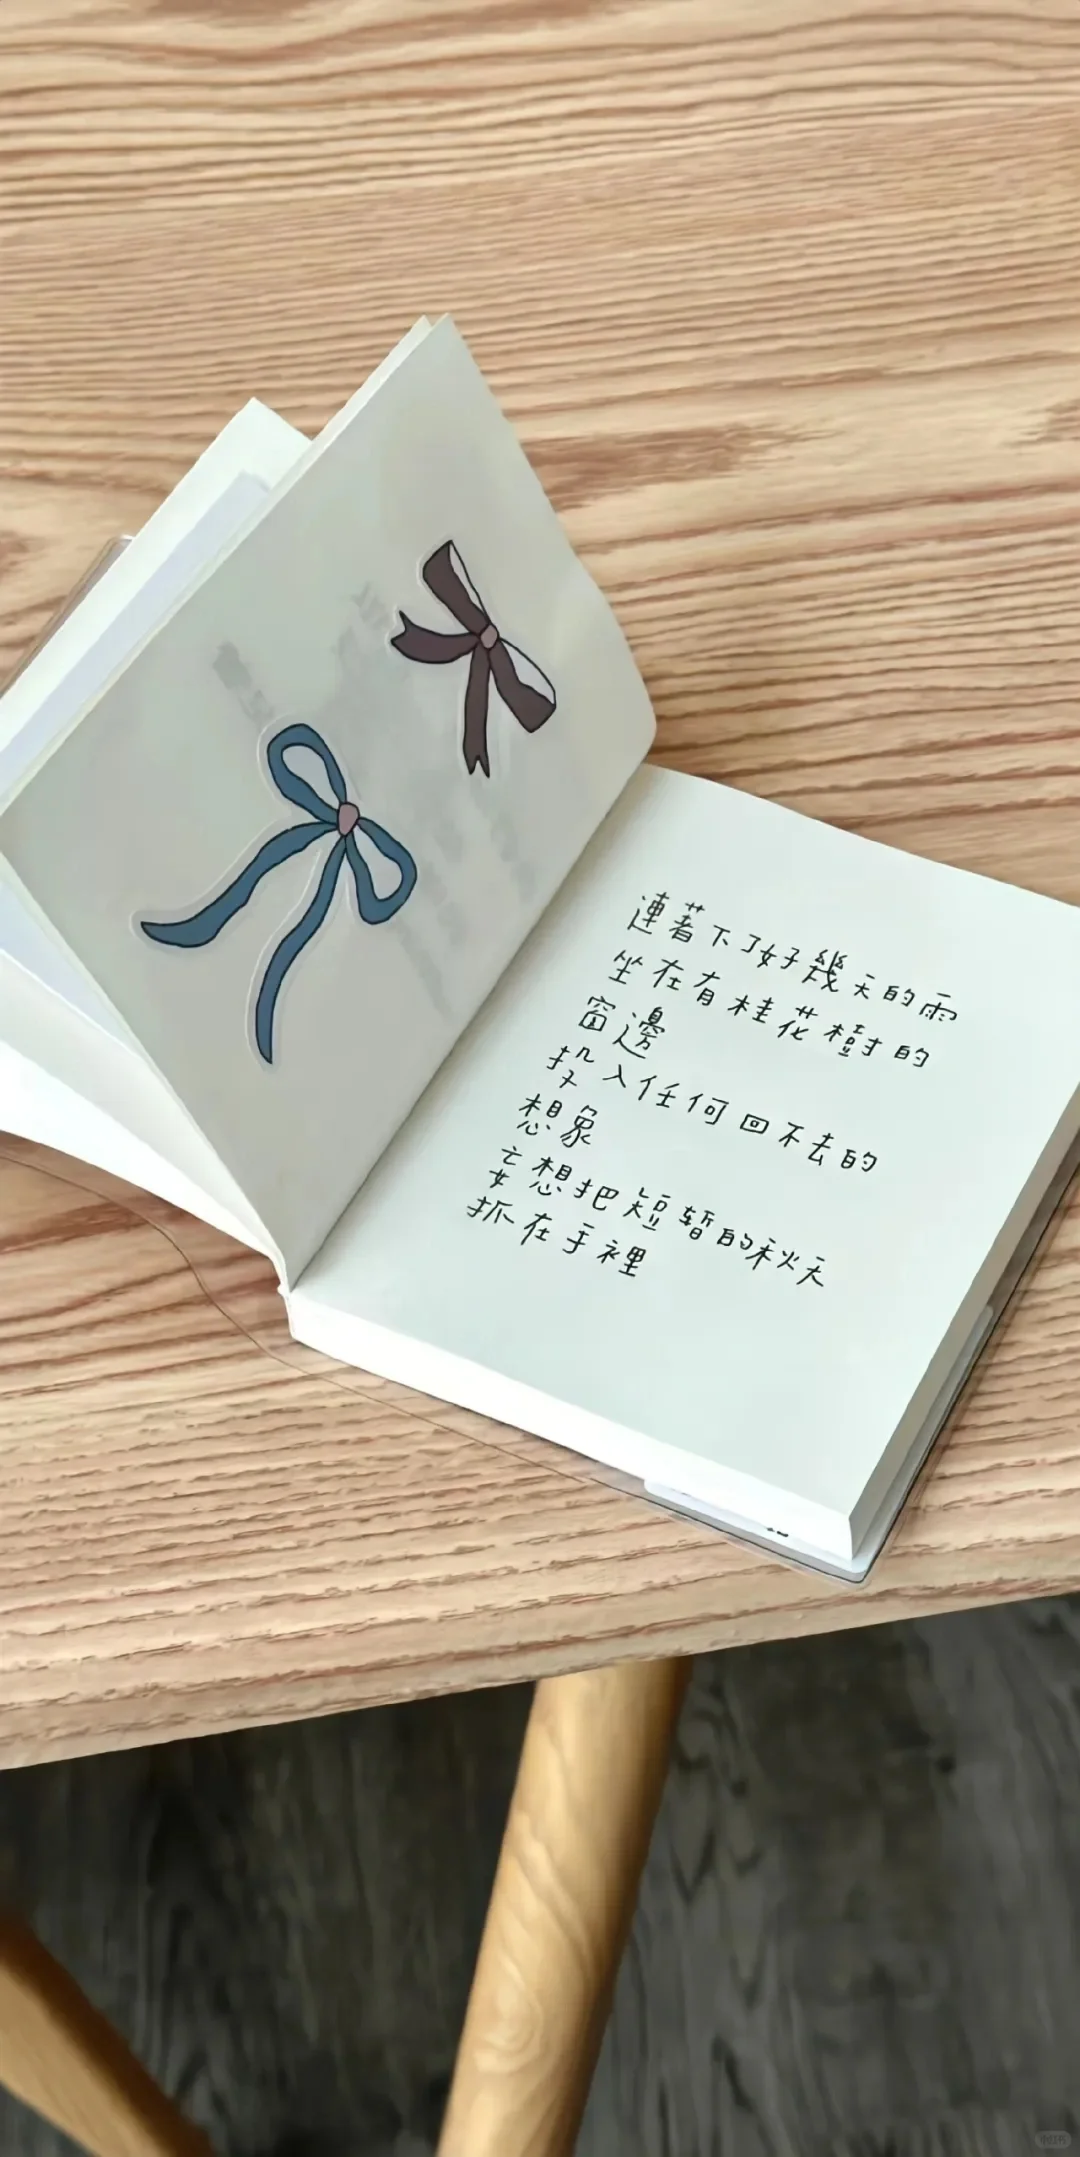 連著下了好幾天的雨
坐在有桂花樹的
窗邊
投入任何回不去的
想象
妄想把短暫的秋天
抓在手裡
小红书